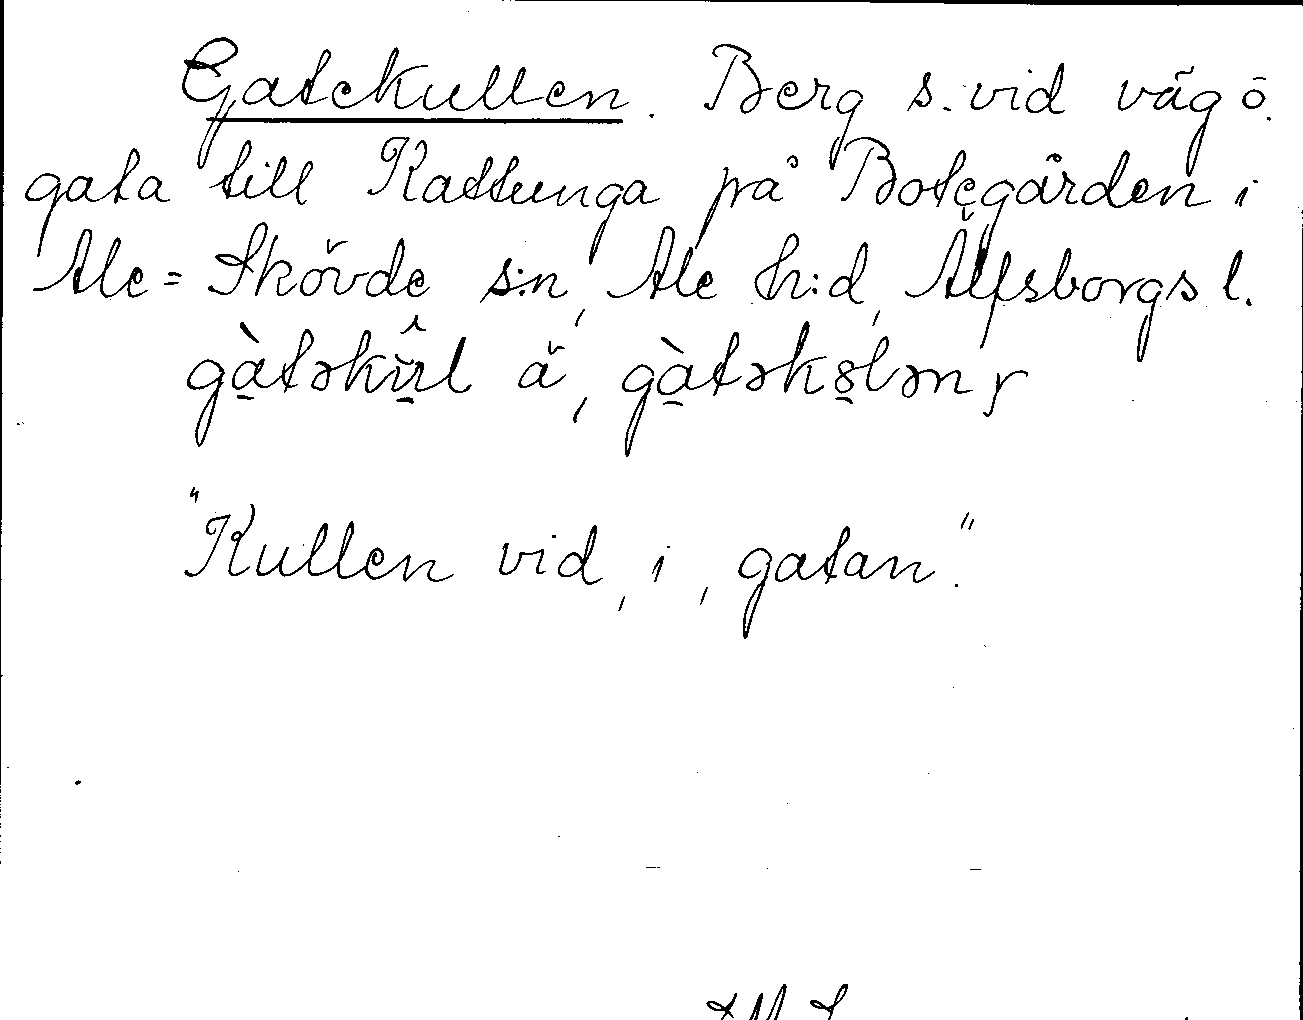 Gatekullen. Berg s. vid väg ö.
gata till Kattunga på Botegården i
Ale=Skövde s:n, Ale h:d, Älfsborgs l.
gàtəkûl ä, gàtəkələn r
"Kullen vid, i, gatan".